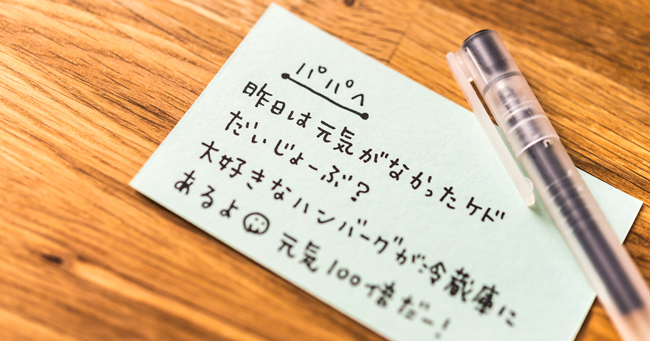 パパへ
昨日は元気がなかったケド
だいじょーぶ?
大好きなハンバーグが冷蔵庫に
あるよ 元気100倍だー!